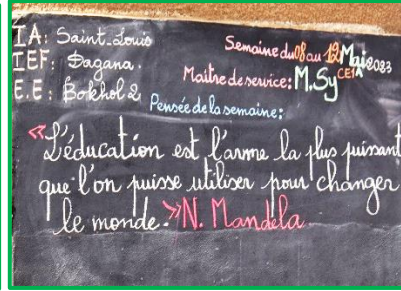 IA: Saint-Louis
IEF: Dagana.
E.E: Bokhol 2
Semaine du 08 au 12 Mai 2023
Maître de service: M. Sy CE1A
Pensée de la semaine:
«L'éducation est l'arme la plus puissant
que l'on puisse utiliser pour changer
le monde.» N. Mandela